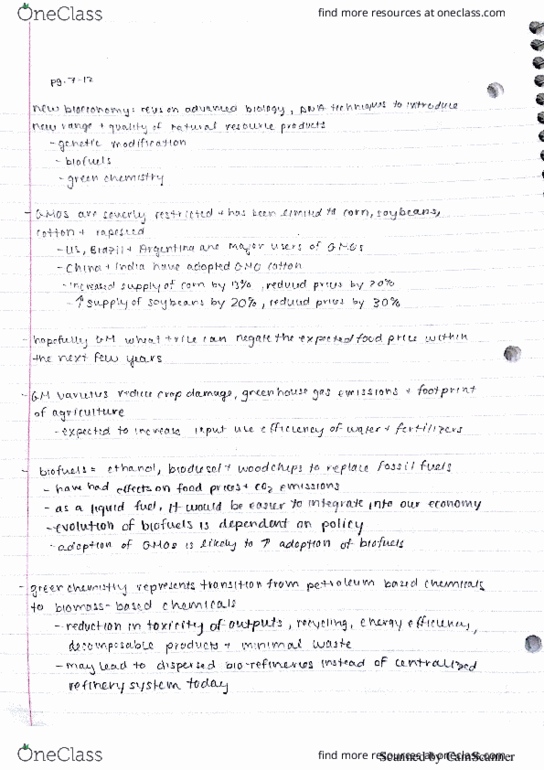 OneClass
find more resources at oneclass.com
pg. 7-12
new bioeconomy: relies on advanced biology, DNA techniques to introduce
new range + quality of natural resource products
- genetic modification
- biofuels
- green chemistry
- GMOs are severly restricted + has been limited to corn, soybeans,
cotton + rapeseed
- US, Brazil + Argentina are major users of GMOs
- China + India have adopted GMO cotton
- increased supply of corn by 13%, reduced prices by 20%
- ↑ supply of soybeans by 20%, reduced prices by 30%
- hopefully GM wheat + rice can negate the expected food price within
the next few years
- GM varieties reduce crop damage, greenhouse gas emissions + footprint
of agriculture
- expected to increase input use efficiency of water + fertilizers
- biofuels = ethanol, biodiesel + woodchips to replace fossil fuels
- have had effects on food prices + CO2 emissions
- as a liquid fuel, it would be easier to integrate into our economy
- evolution of biofuels is dependent on policy
- adoption of GMOs is likely to ↑ adoption of biofuels
- green chemistry represents transition from petroleum based chemicals
to biomass-based chemicals
- reduction in toxicity of outputs, recycling, energy efficiency,
decomposable products + minimal waste
- may lead to dispersed bio-refineries instead of centralized
refinery system today
OneClass
find more resources at oneclass.com
Scanned by CamScanner